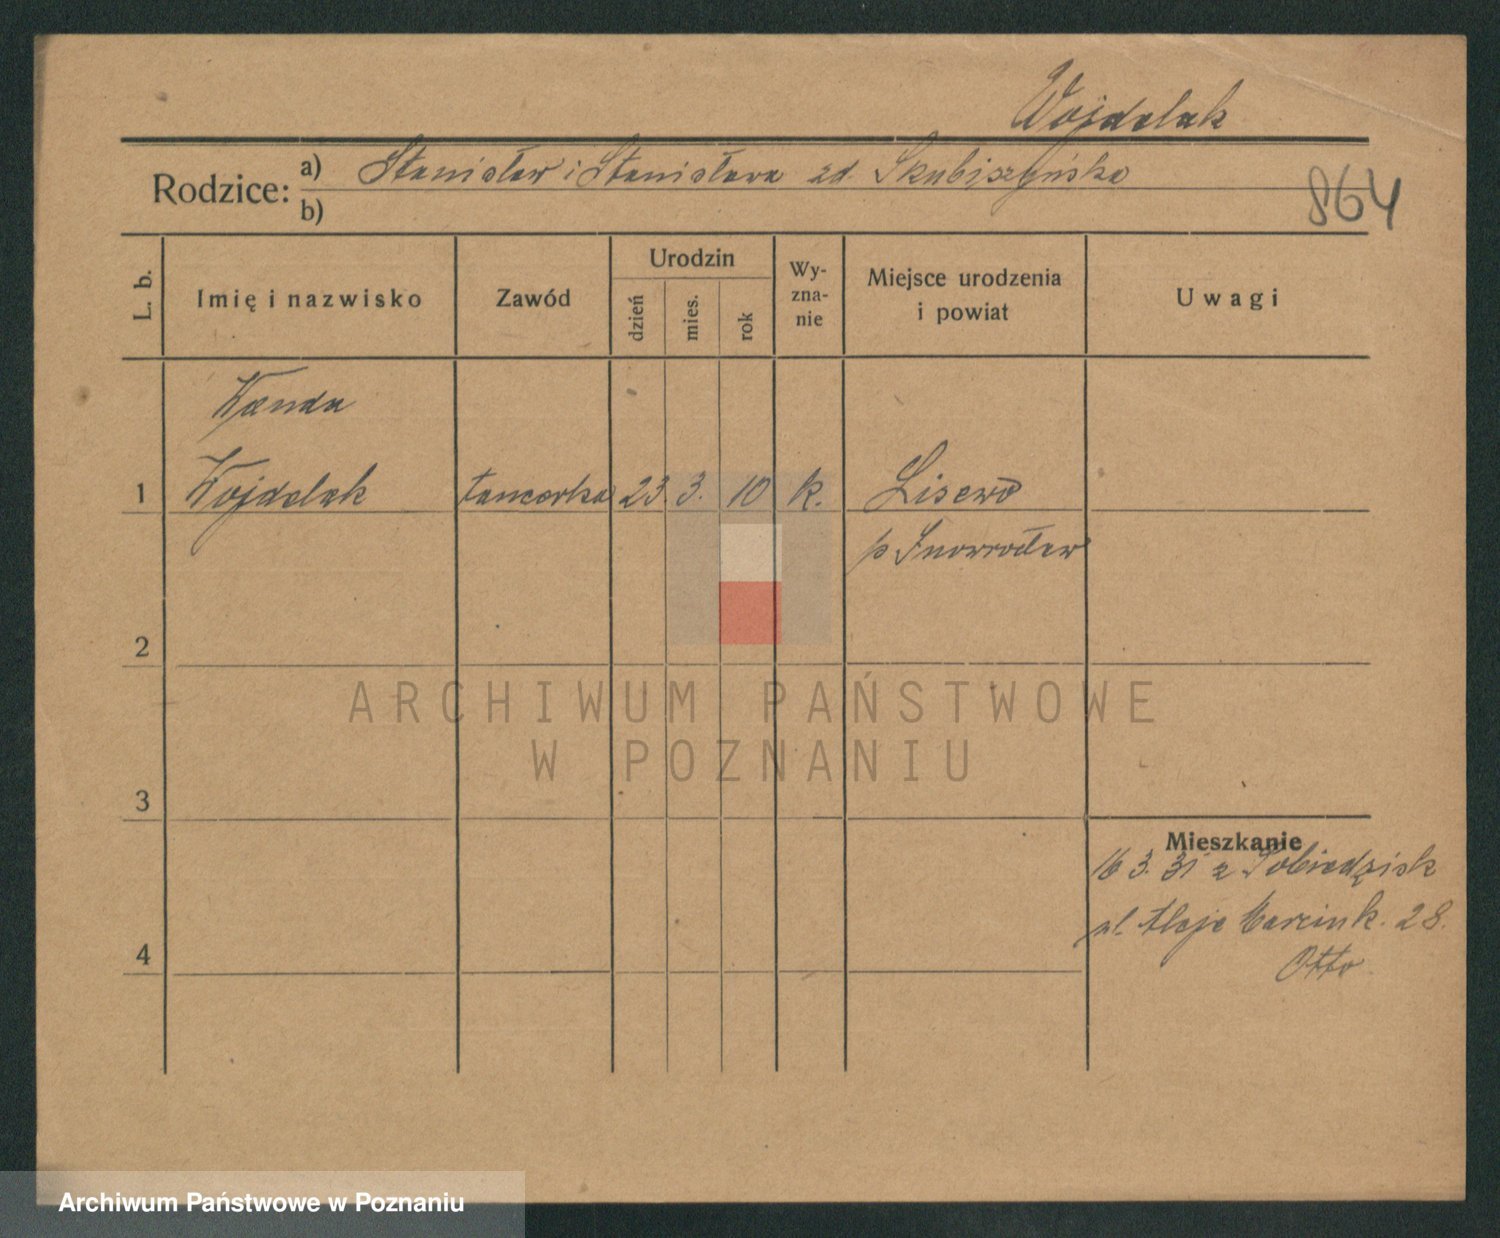 Wojdelak
Rodzice:
a) Stanisław i Stanisława zd. Skubiszyńska
b)
864
L. b.
Imię i nazwisko
Zawód
Urodzin
dzień
mies.
rok
Wy-
zna-
nie
Miejsce urodzenia
i powiat
Uwagi
Wanda
1 Wojdelak tancerka 23. 3. 10 k. Lisewo
p Inowrocław
2
3
4
Mieszkanie
16 3. 31 z Pobiedzisk
ul. Aleje Marcink. 28.
Otto
ARCHIWUM PAŃSTWOWE
W POZNANIU
Archiwum Państwowe w Poznaniu